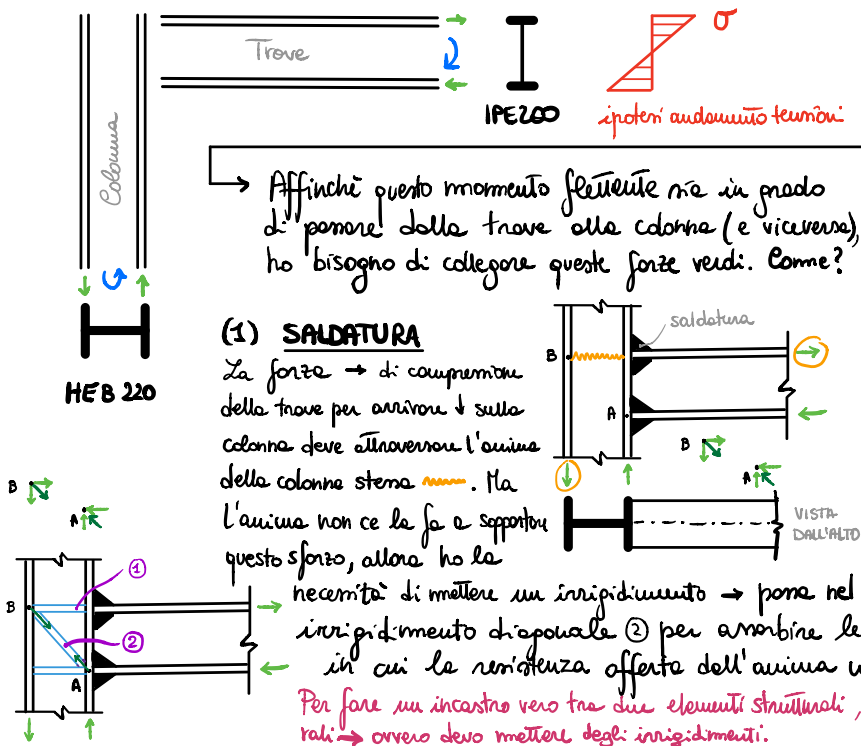 Trave
σ
Colonna
IPE200
ipotesi andamento tensioni
Affinchè questo momento flettente sia in grado
di passare dalla trave alla colonna (e viceversa),
ho bisogno di collegare queste forze verdi. Come?
HEB 220
(1) SALDATURA
La forza → di compressione
della trave per arrivare ↓ sulla
colonna deve attraversare l'anima
della colonna stessa . Ma
l'anima non ce la fa a sopportare
questo sforzo, allora ho la
necessità di mettere un irrigidimento → passa nel
irrigidimento diagonale ② per assorbire le
in cui la resistenza offerta dall'anima
Per fare un incastro vero tra due elementi strutturali,
rali → ovvero devo mettere degli irrigidimenti.
saldatura
B
A
B
A
VISTA
DALL'ALTO
B
A
①
B
②
A